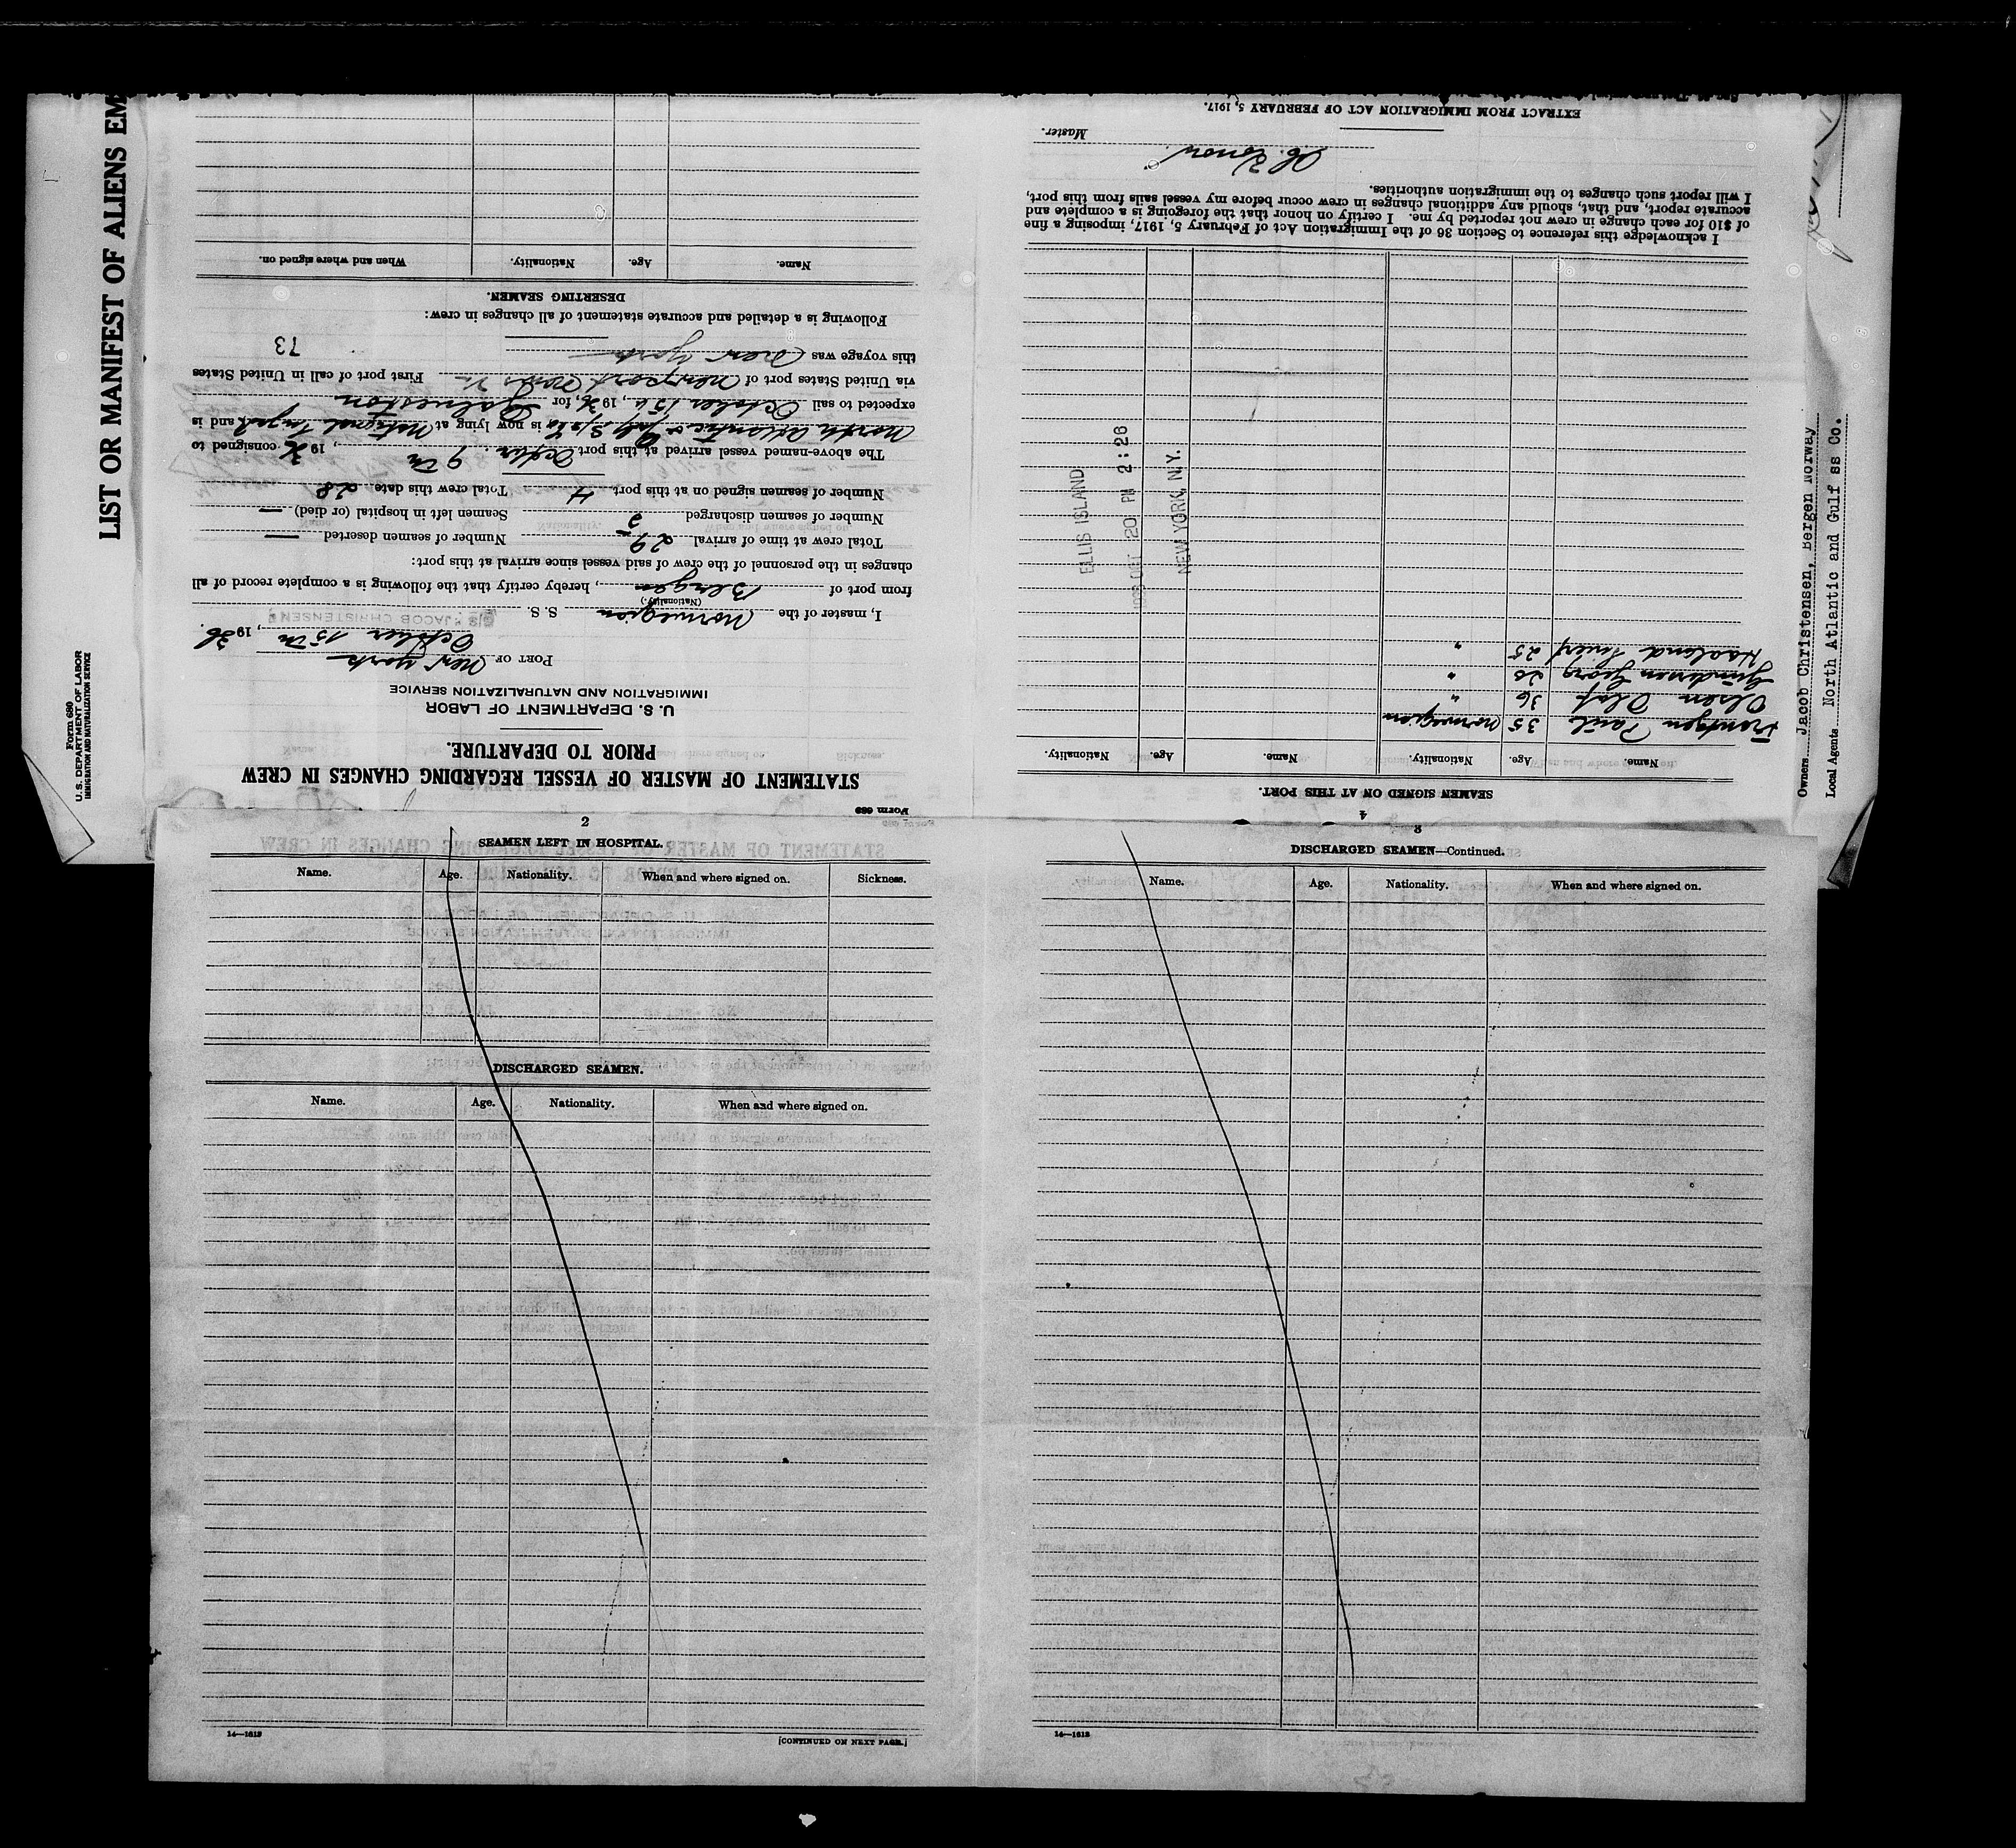 LIST OR MANIFEST OF ALIENS EM
Form 680
U. S. DEPARTMENT OF LABOR
IMMIGRATION AND NATURALIZATION SERVICE
Form 689
STATEMENT OF MASTER OF VESSEL REGARDING CHANGES IN CREW
PRIOR TO DEPARTURE.
U. S. DEPARTMENT OF LABOR
IMMIGRATION AND NATURALIZATION SERVICE
PORT OF New York
October 15th, 1936.
I, master of the Norwegian S. S. JACOB CHRISTENSEN
(Nationality.)
from port of Bergen, hereby certify that the following is a complete record of all
changes in the personnel of the crew of said vessel since arrival at this port:
Total crew at time of arrival 29 Number of seamen deserted —
Number of seamen discharged 5 Seamen left in hospital (or died) —
Number of seamen signed on at this port 4 Total crew this date 28
The above-named vessel arrived at this port October 9th, 1936, consigned to
North Atlantic & Gulf S/S Co is now lying at National and is
expected to sail October 15th, 1936, for Galveston
via United States port of Newport News Va First port of call in United States
this voyage was New York
73
Following is a detailed and accurate statement of all changes in crew:
DESERTING SEAMEN.
Name. Age. Nationality. When and where signed on.
2
SEAMEN LEFT IN HOSPITAL.
Name. Age. Nationality. When and where signed on. Sickness.
DISCHARGED SEAMEN.
Name. Age. Nationality. When and where signed on.
14—1613
[CONTINUED ON NEXT PAGE.]
3
DISCHARGED SEAMEN—Continued.
Name. Age. Nationality. When and where signed on.
14—1613
4
SEAMEN SIGNED ON AT THIS PORT.
Name. Age. Nationality. Name. Age. Nationality.
Paul 35 Norwegian
Olsen Olaf 36 "
Gundersen Georg 26 "
Haaland 25 "
ELLIS ISLAND
1936 OCT 20 PM 2:26
NEW YORK, N.Y.
I acknowledge this reference to Section 36 of the Immigration Act of February 5, 1917, imposing a fine
of $10 for each change in crew not reported by me. I certify on honor that the foregoing is a complete and
accurate report, and that, should any additional changes in crew occur before my vessel sails from this port,
I will report such changes to the immigration authorities.
Master.
EXTRACT FROM IMMIGRATION ACT OF FEBRUARY 5, 1917.
Owners Jacob Christensen, Bergen Norway
Local Agents North Atlantic and Gulf ss Co.